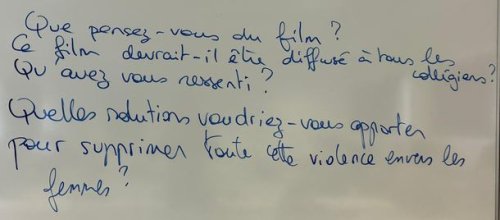 Que pensez-vous du film ?
Ce film devrait-il être diffusé à tous les collégiens ?
Qu'avez vous ressenti ?
Quelles solutions voudriez-vous apporter
pour supprimer toute cette violence envers les
femmes ?